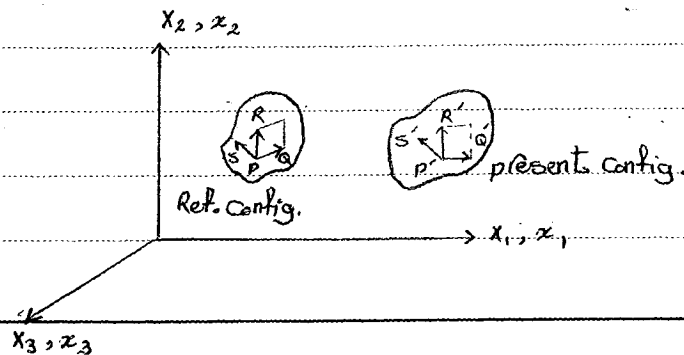 X₂, x₂
R
S
P
Q
Ref. Config.
R′
S′
P′
Q′
present config.
X₁, x₁
X₃, x₃